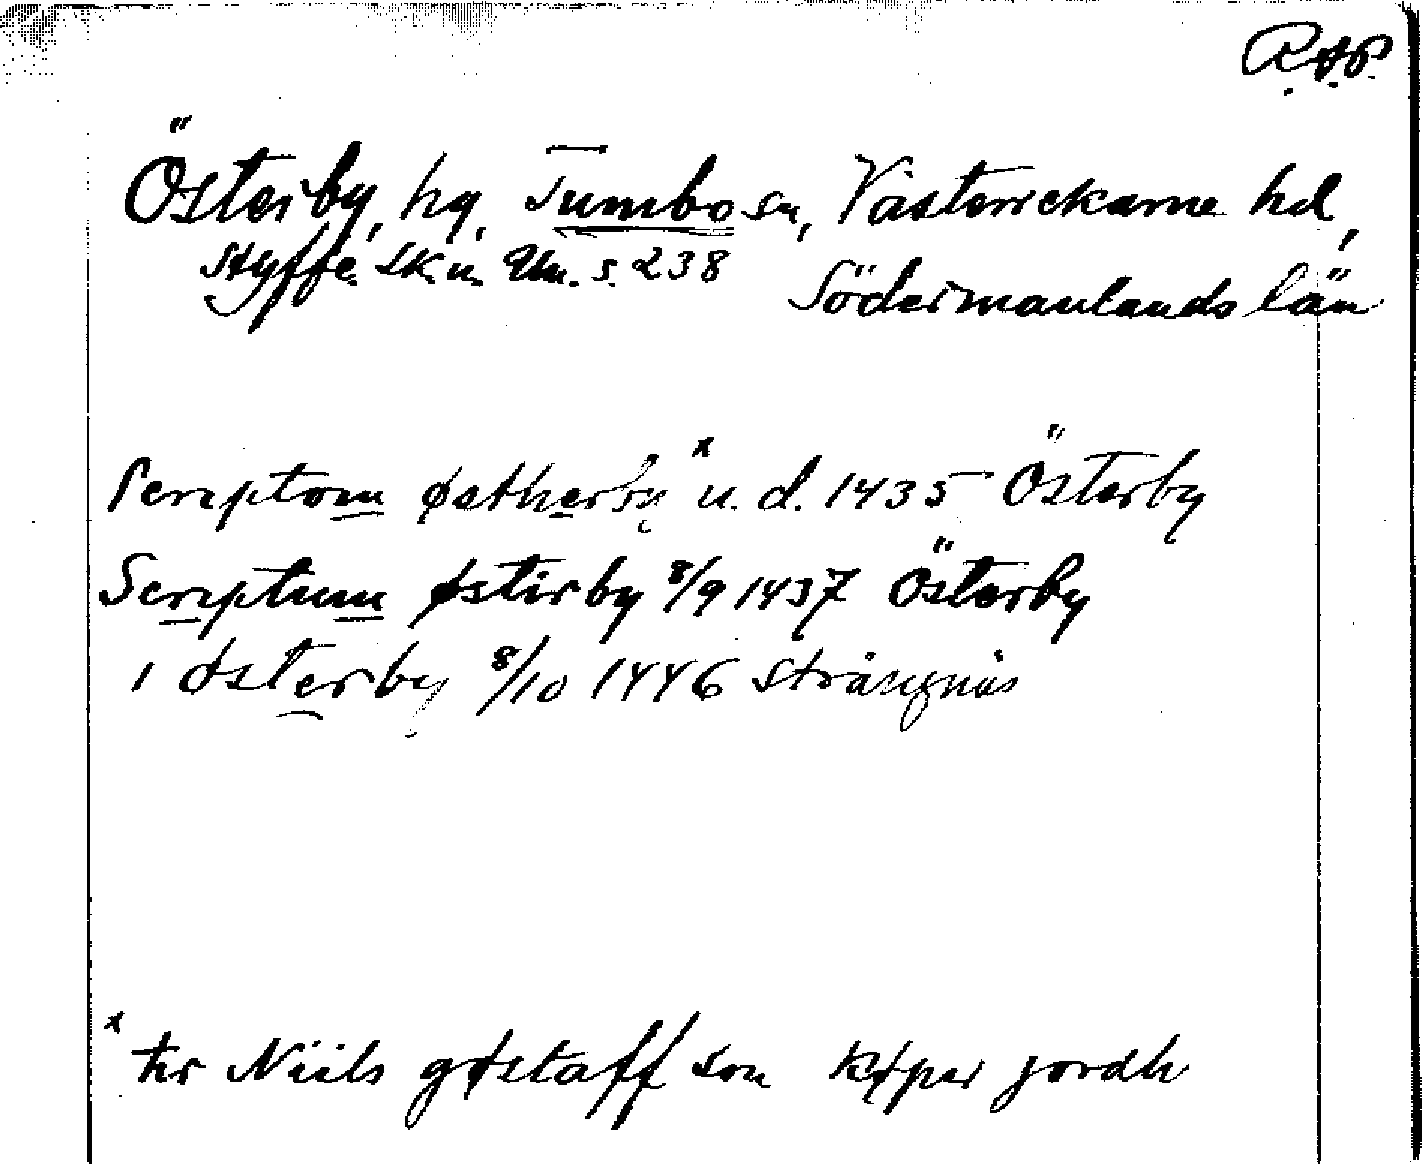 R.A.P.
Österby, hg, Tumbo sn, Västerrekarne hd,
Styffe Sk. u. Un. s. 238
Södermanlands län
Scriptom østherby x u. d. 1435 Österby
Scriptum østirby 8/9 1437 Österby
i østerby 8/10 1446 Strängnäs
x her Niils gøstaffson køper jordh